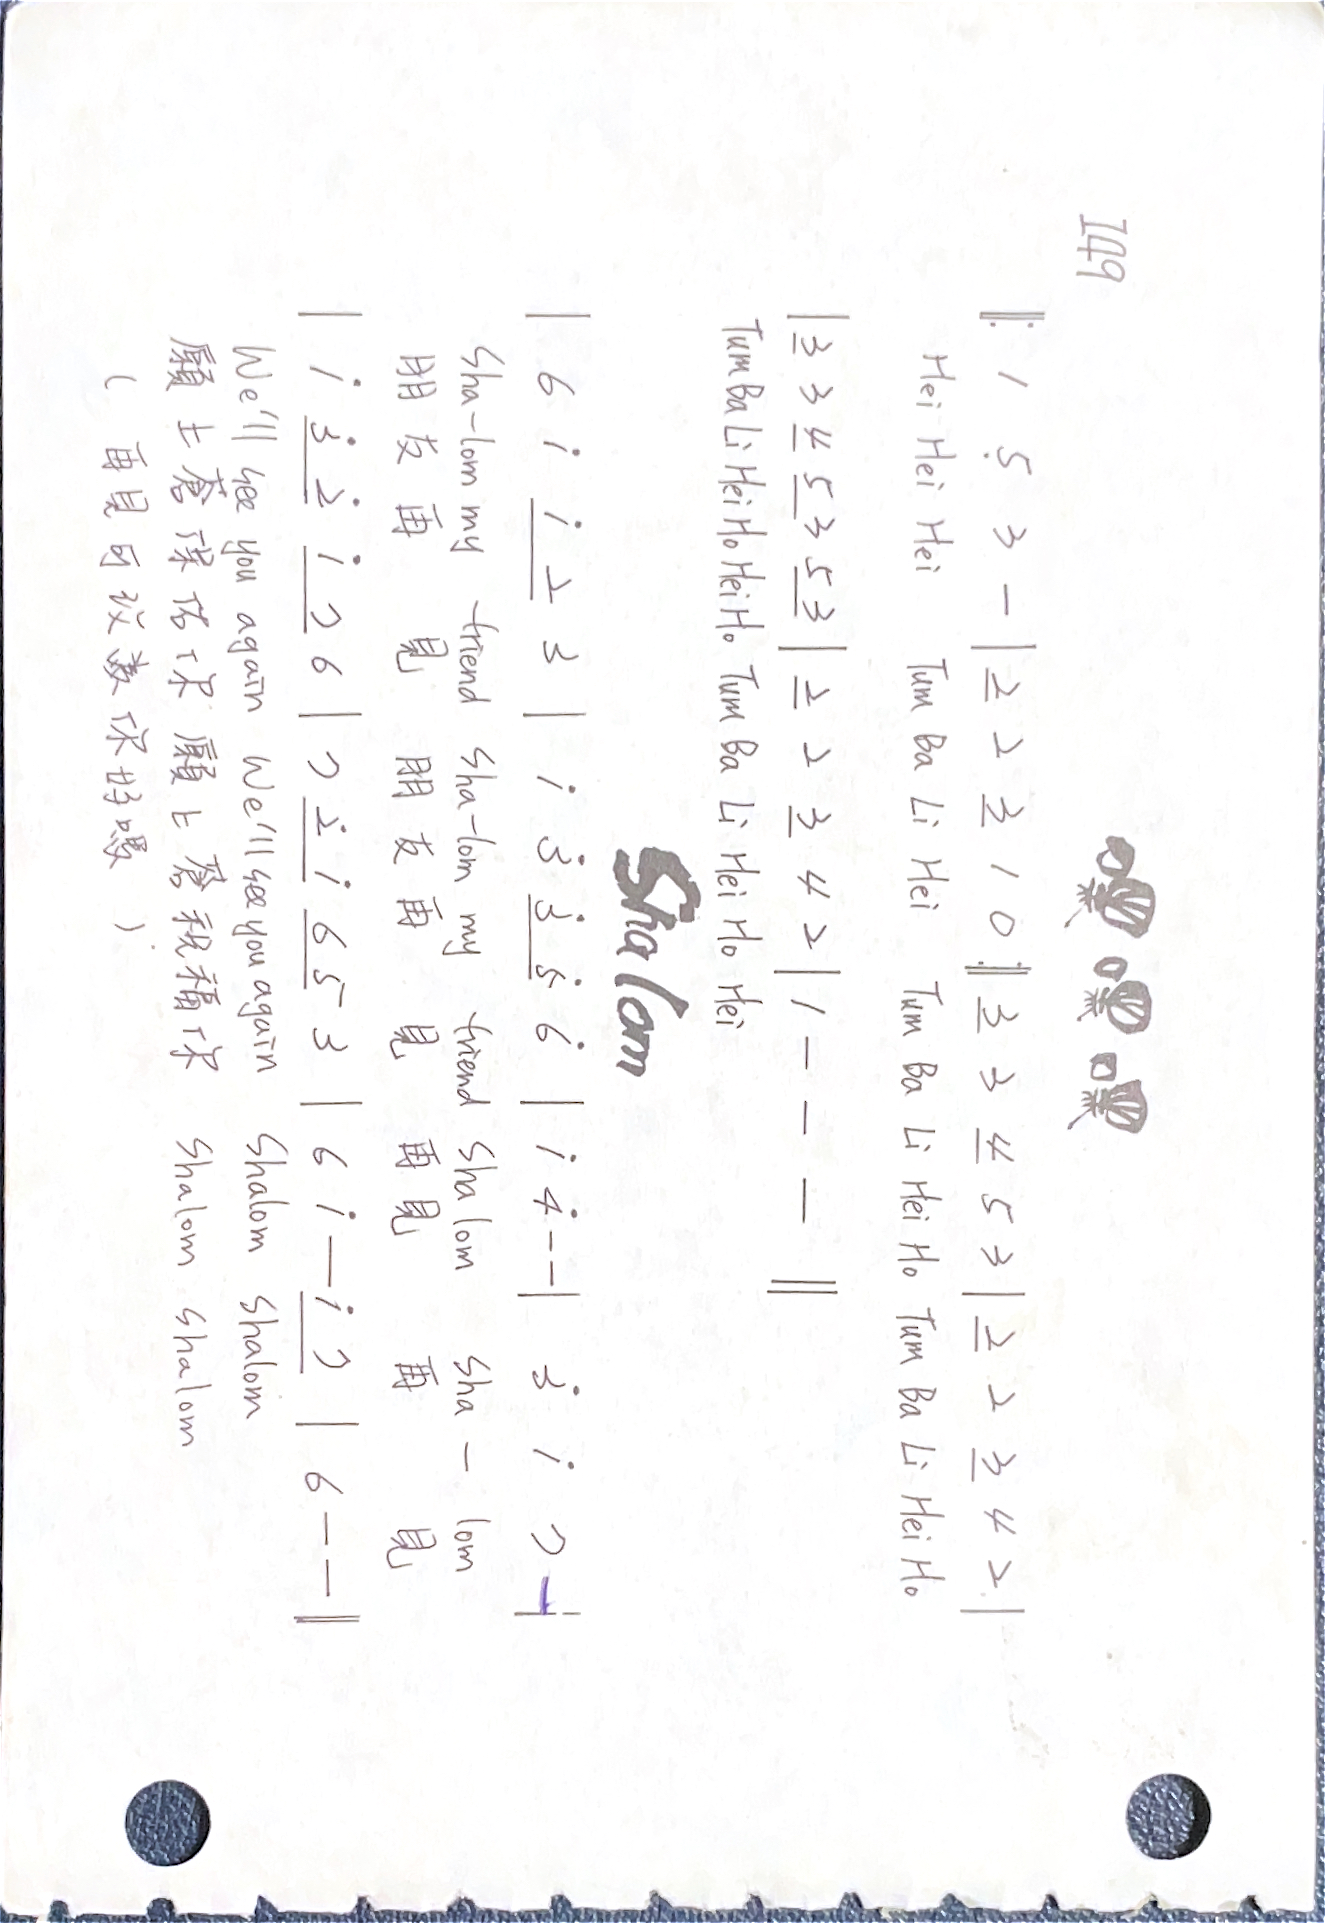 149
嘿嘿嘿
‖: 1 5̣ 3 – | 2̲ 2 3̲ 1 0 :‖ 3̲ 3 4̲ 5 3 | 2̲ 2 3̲ 4 2 |
Hei Hei Hei Tum Ba Li Hei Tum Ba Li Hei Ho Tum Ba Li Hei Ho
| 3̲ 3 4̲ 5̲ 3 5̲ 3̲ | 2̲ 2 3̲ 4 2 | 1 – – – ‖
Tum Ba Li Hei Ho Hei Ho Tum Ba Li Hei Ho Hei
Shalom
| 6 i i̲ 2̲ 3 | i 3̇ 3̲̇ 5̲̇ 6̇ | i 4̇ – – | 3̇ i 7 – |
Sha-lom my friend Sha-lom my friend Sha lom Sha – lom
朋友再見 朋友再見 再見 再見
| i 3̲̇ 2̲̇ i̲ 7̲ 6 | 7 2̲̇ i̲ 6̲ 5̲ 3 | 6 i – i̲ 7̲ | 6 – – ‖
We'll see you again We'll see you again Shalom Shalom
願上蒼保佑你 願上蒼祝福你 Shalom Shalom
( 再見可改為你好嗎 )